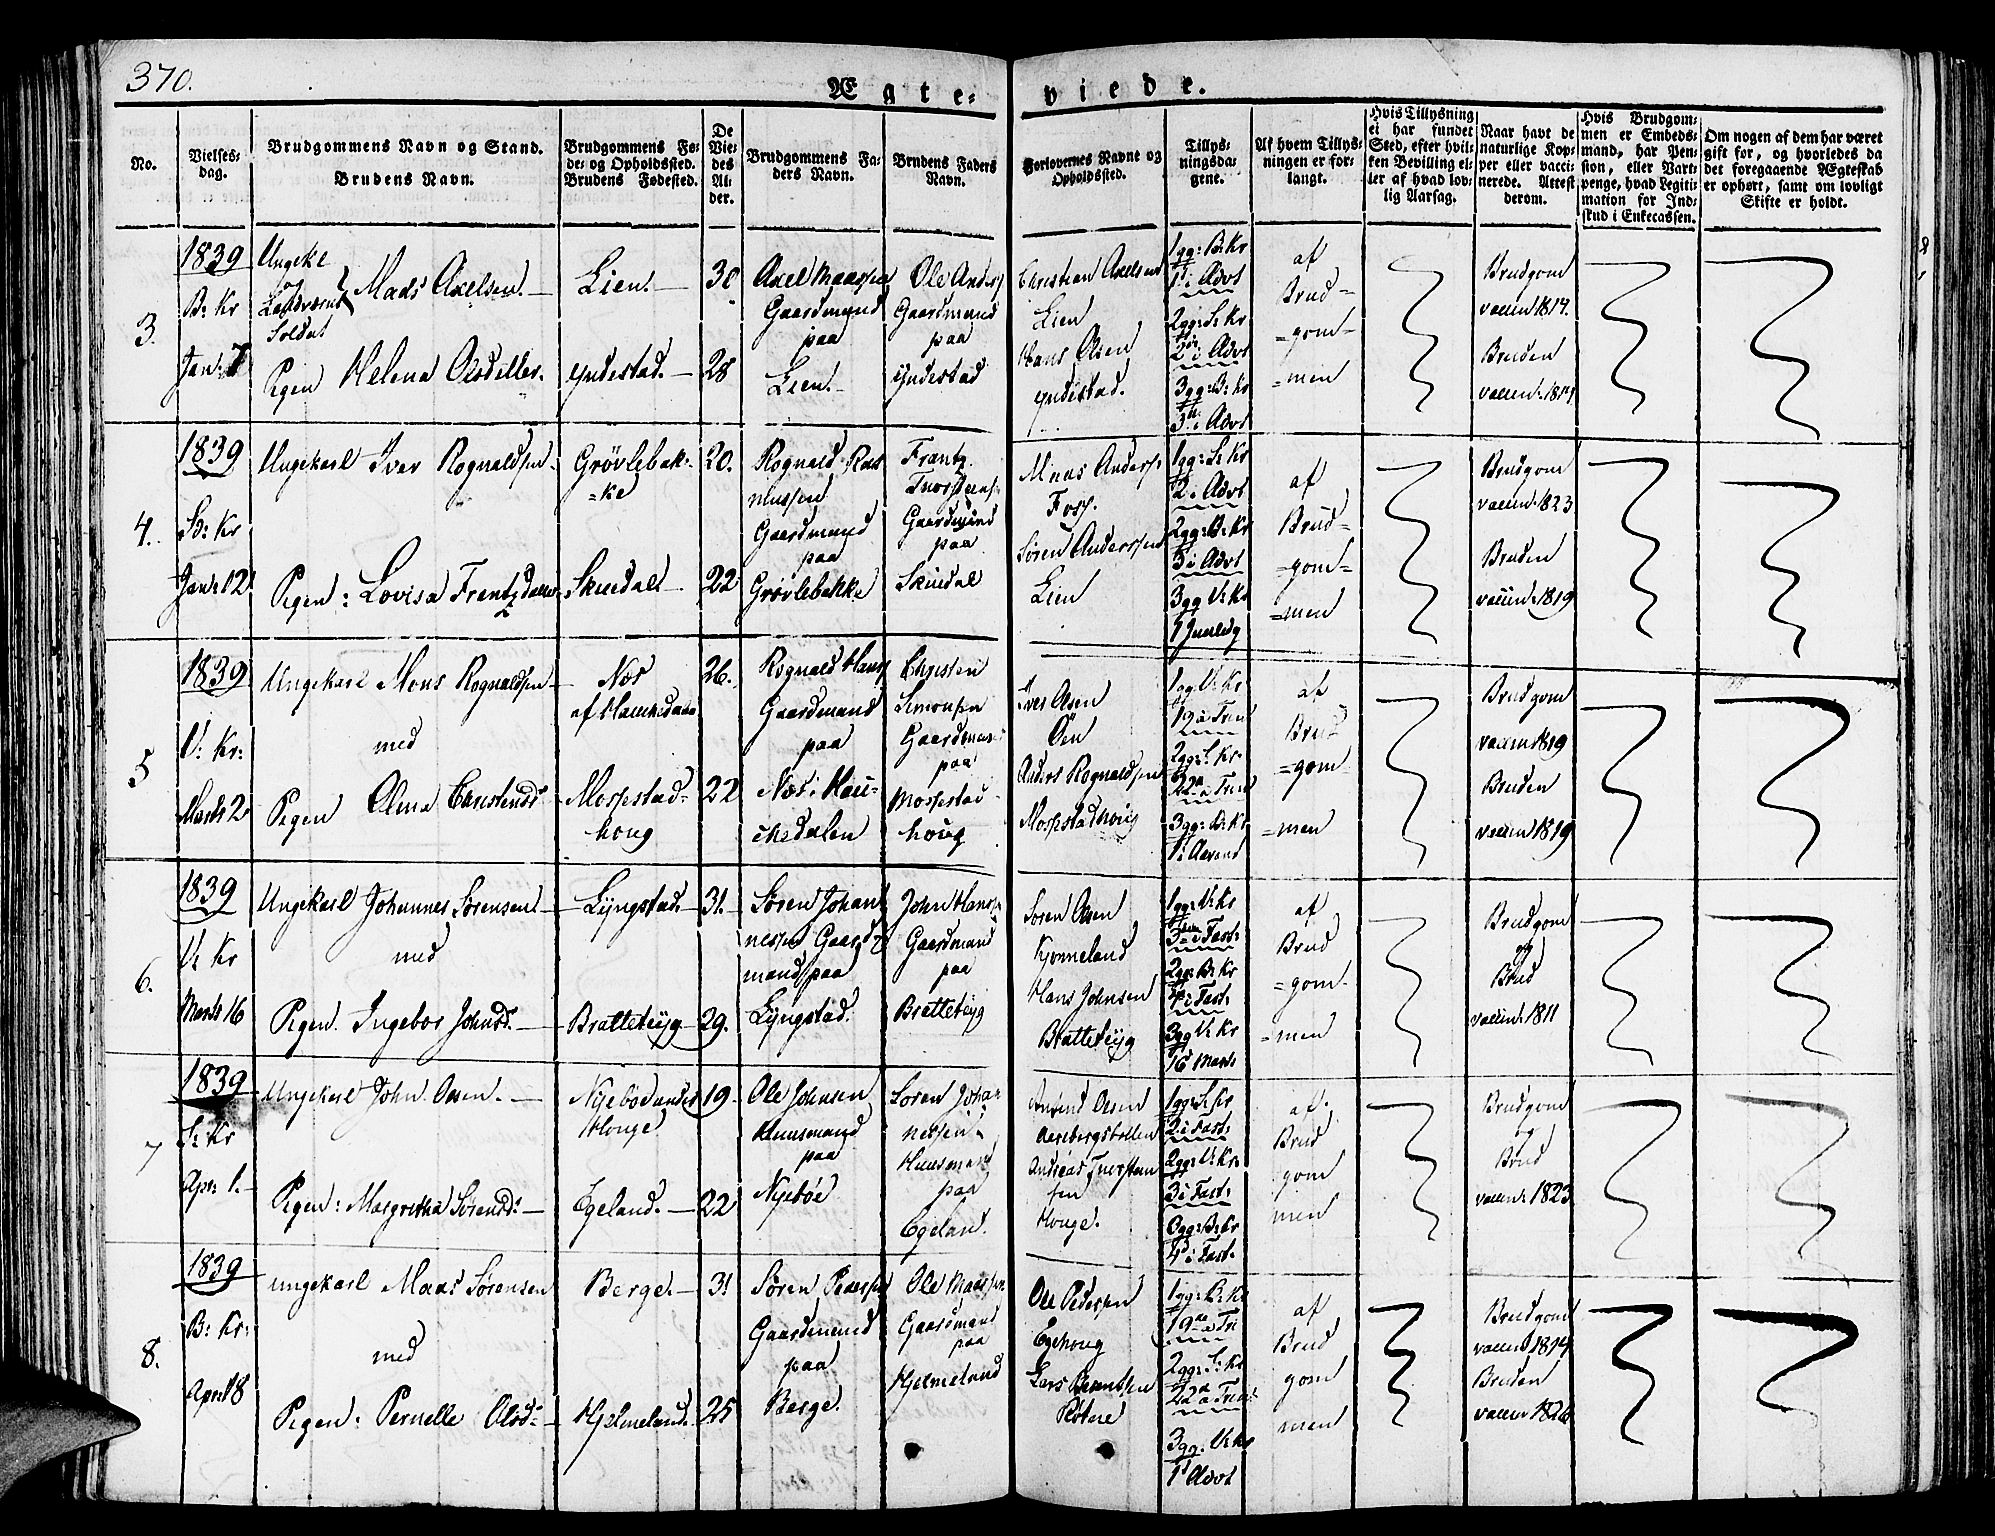 370.
Ægte-
viede.
No.
Vielses-
dag.
Brudgommens Navn og Stand.
Brudens Navn.
Brudgommens Fø-
de- og Opholdssted.
Brudens Fødested.
De
Vie-
des
Al-
der.
Brudgommens Fa-
ders Navn.
Brudens Faders
Navn.
Forlovernes Navne og
Opholdssted.
Tillys-
ningsda-
gene.
Af hvem Tillys-
ningen er for-
langt.
Hvis Tillysning
ei har fundet
Sted, efter hvil-
ken Bevilling el-
ler af hvad lov-
lig Aarsag.
Naar havt de
naturlige Kop-
per eller vacci-
nerede. Attest
derom.
Hvis Brudgom-
men er Embeds-
mand, har Pen-
sion, eller Vart-
penge, hvad Legiti-
mation for Ind-
skud i Enkecassen.
Om nogen af dem har været
gift før, og hvorledes da
det foregaaende Ægteskab
er ophørt, samt om lovligt
Skifte er holdt.
3.
1839
B: Kr
Jan: 7
Ungekl
og
Landværns
Soldat
Mads Axelsen.
Pigen Helena Olsdatter.
Lien.
Yndestad.
30
28
Axel Madssen
Gaardmand
paa
Lien.
Ole Anders
Gaardmand
paa
Yndestad
Christian Axelsen
Lien
Hans Olsen
Yndestad.
1gg: B: Kr
1 i Advt
2gg: S: Kr
2 i Advt
3gg: B: Kr
3 i Advt
af
Brud=
=gom=
=men
Brudgom
vaccin 1814.
Bruden
vaccin: 1814
4.
1839
S: Kr
Jan: 12
Ungekarl Iver Rognaldsen
Pigen: Lovisa Frantzdatter
Grövlebak-
=ke
Skiedal
20.
22
Rognald Ras
mussen
Gaardmand
paa
Grövlebakke
Frantz
Thorsteens
Gaardmand
paa
Skiedal
Anders
Foss.
Sören Anderssen
Lien
1gg: S: Kr
2 i Advt
2gg: B: Kr
3 i Advt
3gg V: Kr
af
Brud=
=gom=
=men
Brudgom
vaccin: 1823
Bruden
vaccin: 1819
5
1839
V: Kr:
Marts 2
Ungekarl Mons Rognaldsen
med
Pigen Olina Christensd:
Næs
af Haukedalen
Mossestad-
houg
26.
22
Rognald Hanss
Gaardmand
paa
Næs i Hau=
kedalen
Christen
Simonsen
Gaardmand
paa
Mossestad
houg
Iver Olsen
Öen
Anders Rognaldsen
Mossestadhoug
1gg V: Kr
19 a Trin
2gg: S: Kr.
22 a Trin
3gg: B: Kr
af
Brud
=gom
=men
Brudgom
vaccin 1819
Bruden
vaccin 1819
6.
1839
V: Kr
Marts 16
Ungekarl Johannes Sörensen
med
Pigen. Ingebor Johnsd:
Lyngstad.
Bratteteyg
31.
29.
Sören Johan
nessen Gaard
mand paa
Lyngstad.
John Hanss
Gaardmand
paa
Bratteteyg
Sören Olsen
Kjonneland
Hans Johnsen
Bratteteyg
1gg: V: Kr
3 i Fast:
2gg: B: Kr
4 i Fast:
3gg V: Kr
16 Marts
af
Brud
=gom-
=men
Brudgom
og
Brud
vaccin: 1811
7
1839
S: Kr
Apr: 1.
Ungekarl John Olsen.
Pigen: Margretha Sörensd:
Nyebö under
Houge
Egeland.
19
22
Ole Johnsen
Huusmand
paa
Nyeböe
Sören Johan
nessen
Huusmand
paa
Egeland.
Olsen
Andreas Thorsteen
sen
Houge.
1gg: S: Kr
2 i Fast:
2gg: V: Kr.
3 i Fast:
3gg: B: Kr
4 i Fast.
af
Brud
gom
men
Brudgom
og
Brud
vaccin: 1823
8.
1839
B: Kr:
April 8
Ungekarl Mads Sörensen
med
Pigen: Pernelle Olsd:
Berge.
Hjelmeland.
31
25
Sören Pederssen
Gaardmand
paa
Berge.
Ole Madssen
Gaardmand
paa
Hjelmeland
Ole Pedersen
Egehoug
Lars
1gg: B: Kr
19 a Tri
2gg: S: Kr
22 a Trin:
3gg: V: Kr
1 Advt
af
Brud
gom
men
Brudgom
vaccin 1814
Bruden
vaccin 1826